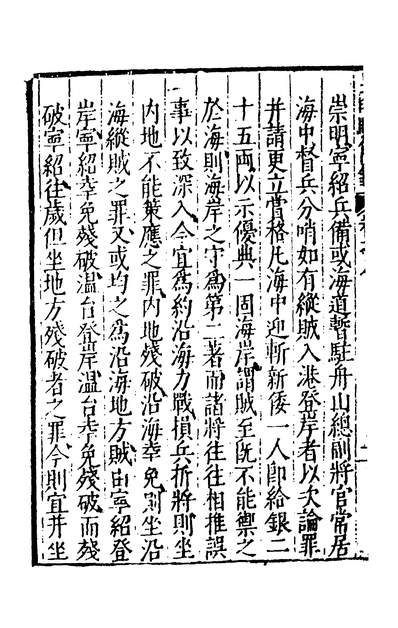 崇明寧紹兵備或海道暫駐舟山總副將官常居
海中督兵分哨如有縱賊入港登岸者以次論罪
并請更立賞格凡海中迎斬新倭一人即給銀二
十五兩以示優典一固海岸謂賊至旣不能禦之
於海則海岸之守爲第二著而諸將往往相推誤
事以致深入今宜爲約沿海力戰損兵折將則坐
內地不能策應之罪內地殘破沿海幸免則坐沿
海縱賊之罪又或均之爲沿海地方賊由寧紹登
岸寧紹幸免殘破溫台登岸溫台幸免殘破而殘
破寧紹往歲但坐地方殘破者之罪今則宜并坐